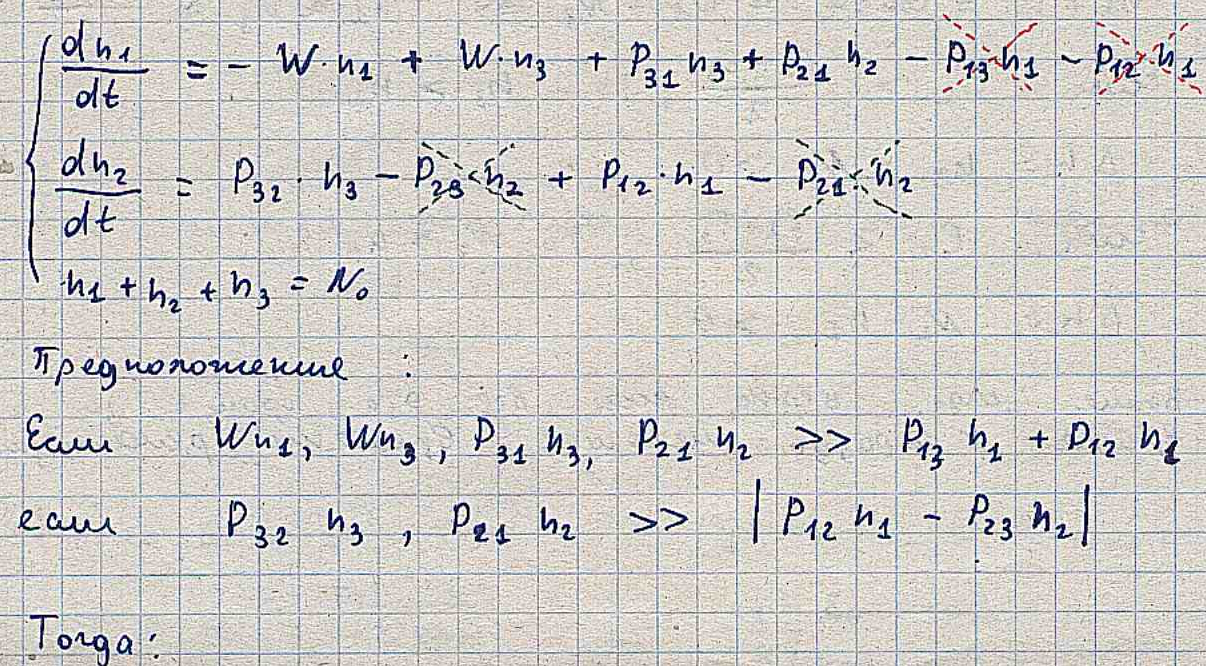 dn₁/dt = - W·n₁ + W·n₃ + P₃₁ n₃ + P₂₁ n₂ - P₁₃ n₁ - P₁₂ n₁
dn₂/dt = P₃₂ · n₃ - P₂₃ n₂ + P₁₂ · n₁ - P₂₁ · n₂
n₁ + n₂ + n₃ = N₀
Предположение :
Если Wn₁, Wn₃, P₃₁ n₃, P₂₁ n₂ >> P₁₃ n₁ + P₁₂ n₁
если P₃₂ n₃ , P₂₁ n₂ >> | P₁₂ n₁ - P₂₃ n₂ |
Тогда: